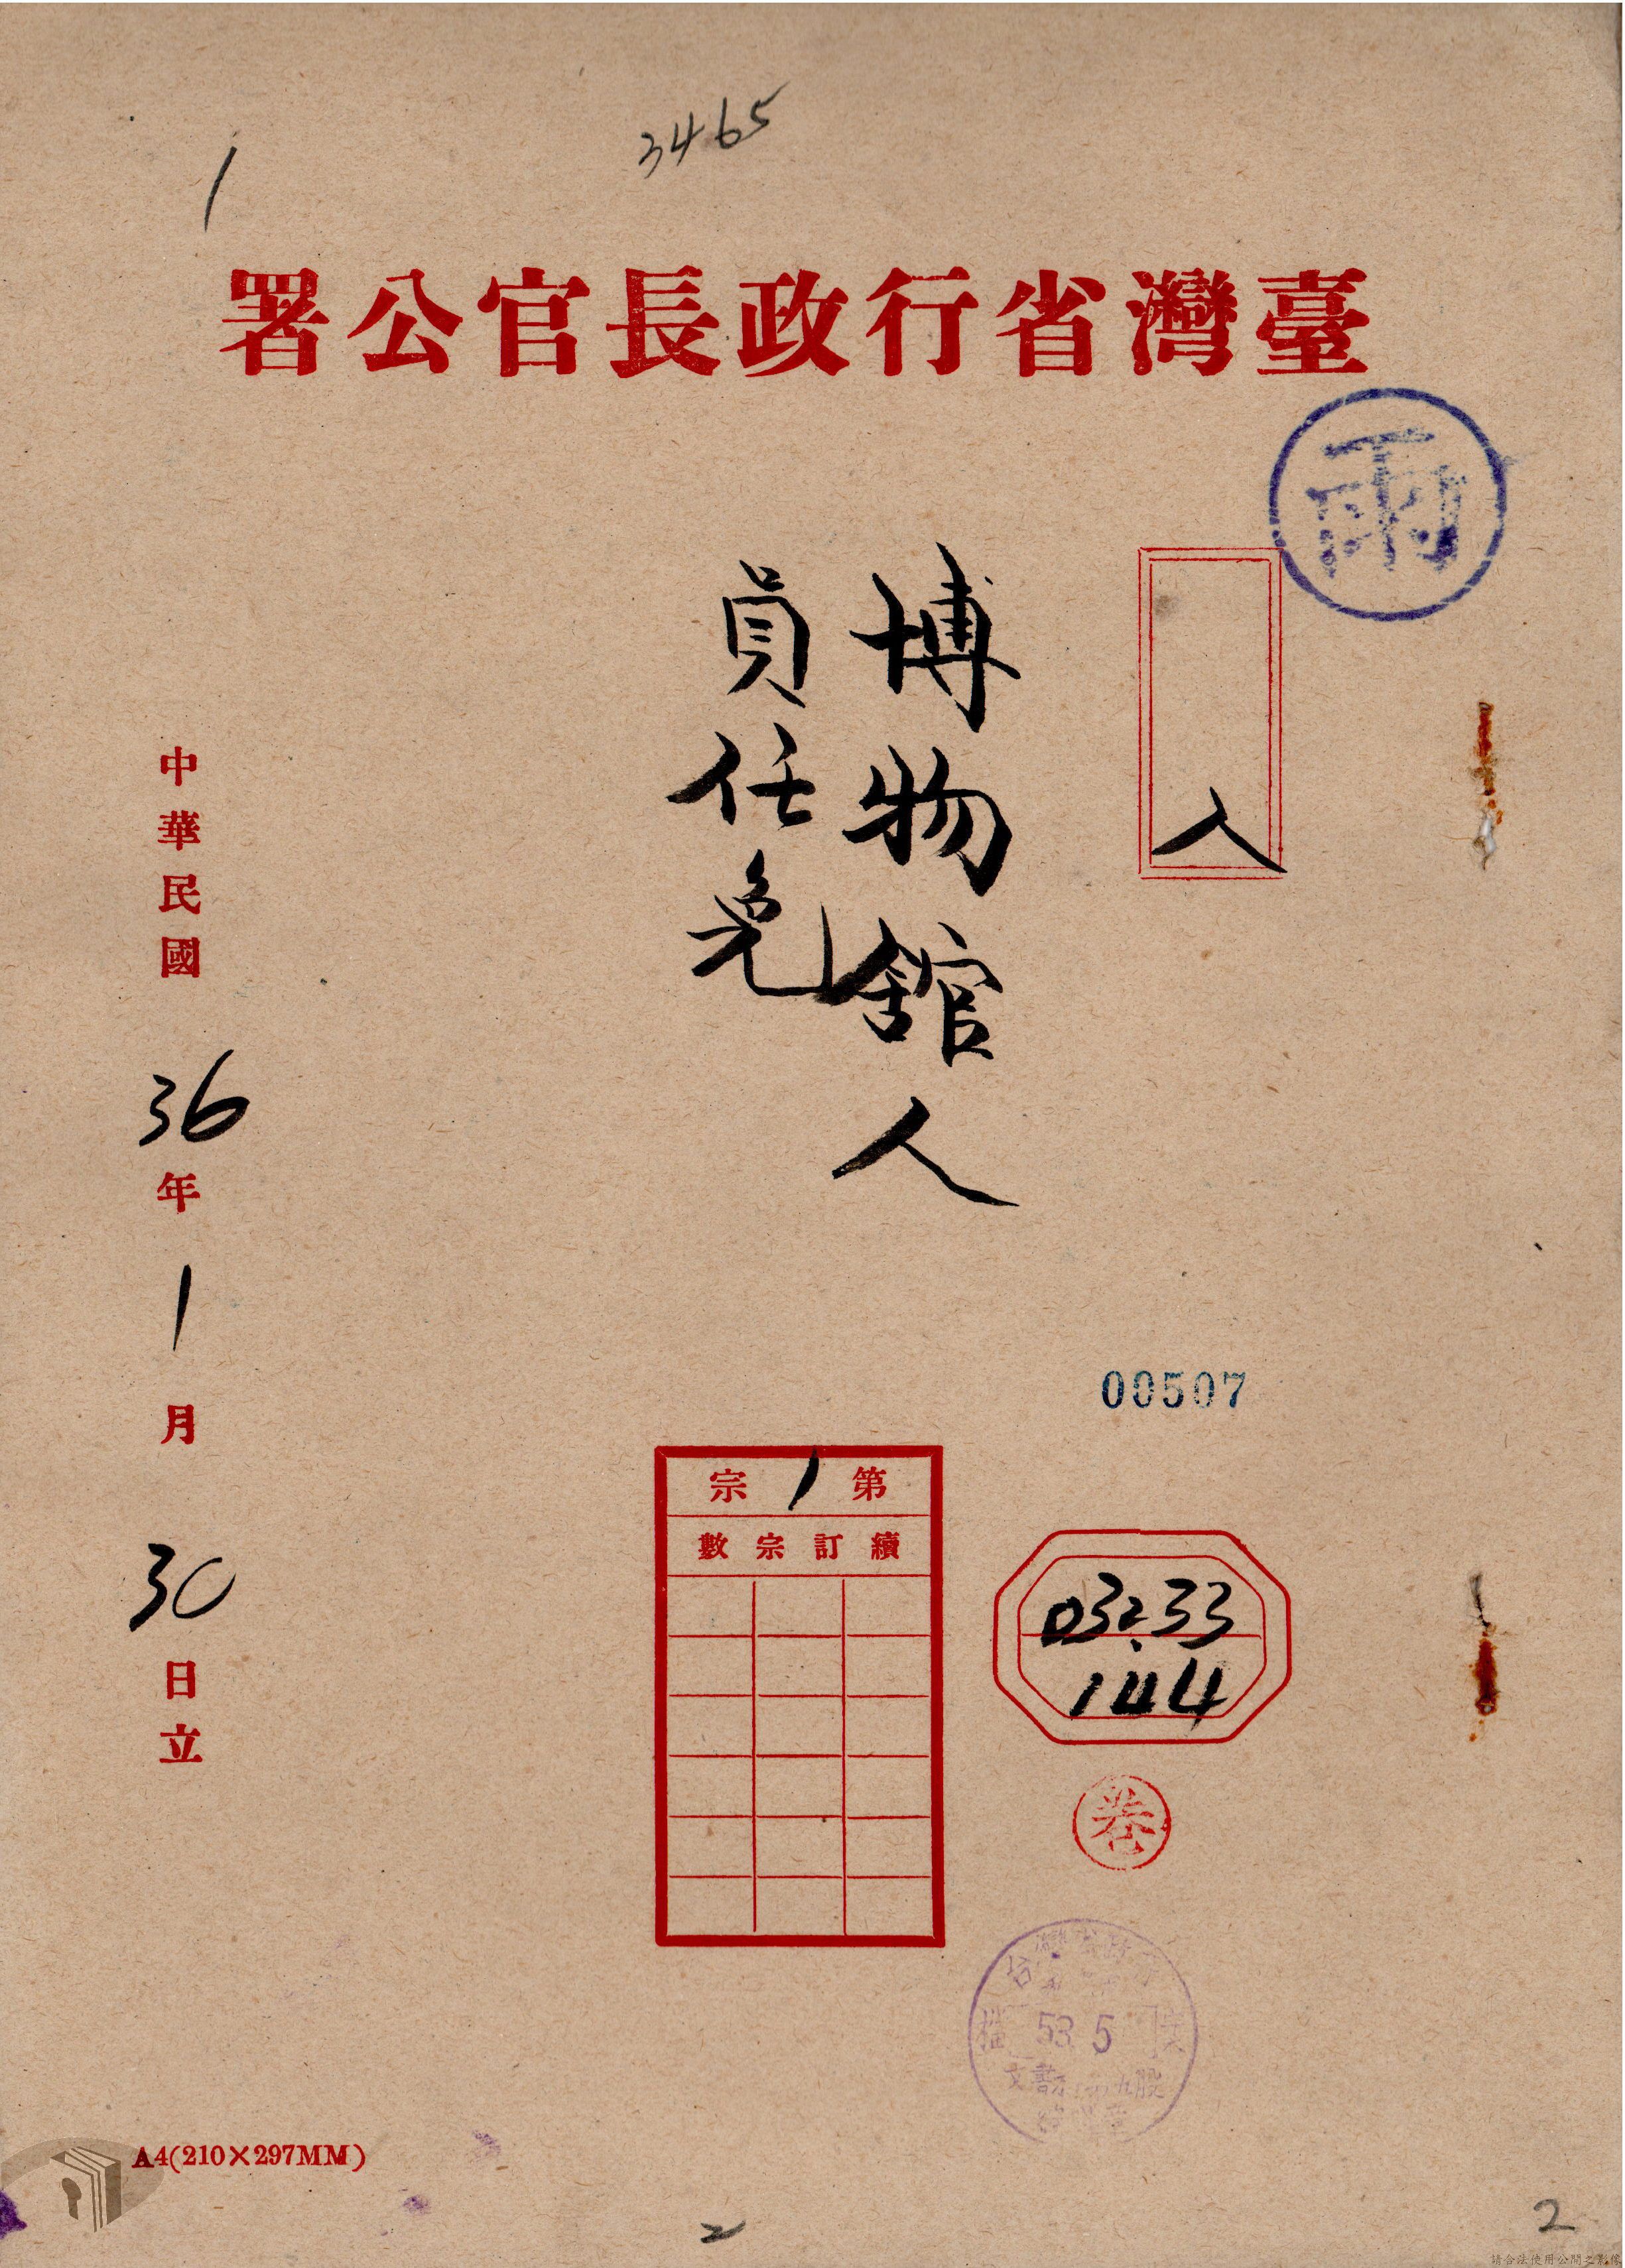 1
3465
臺灣省行政長官公署
雨
人
博物館人
員任免
中華民國36年1月30日立
00507
第1宗
續訂宗數
0323.3
144
卷
台灣
檔
53. 5
文書
A4(210×297MM)
2
2
請合法使用公開之影像